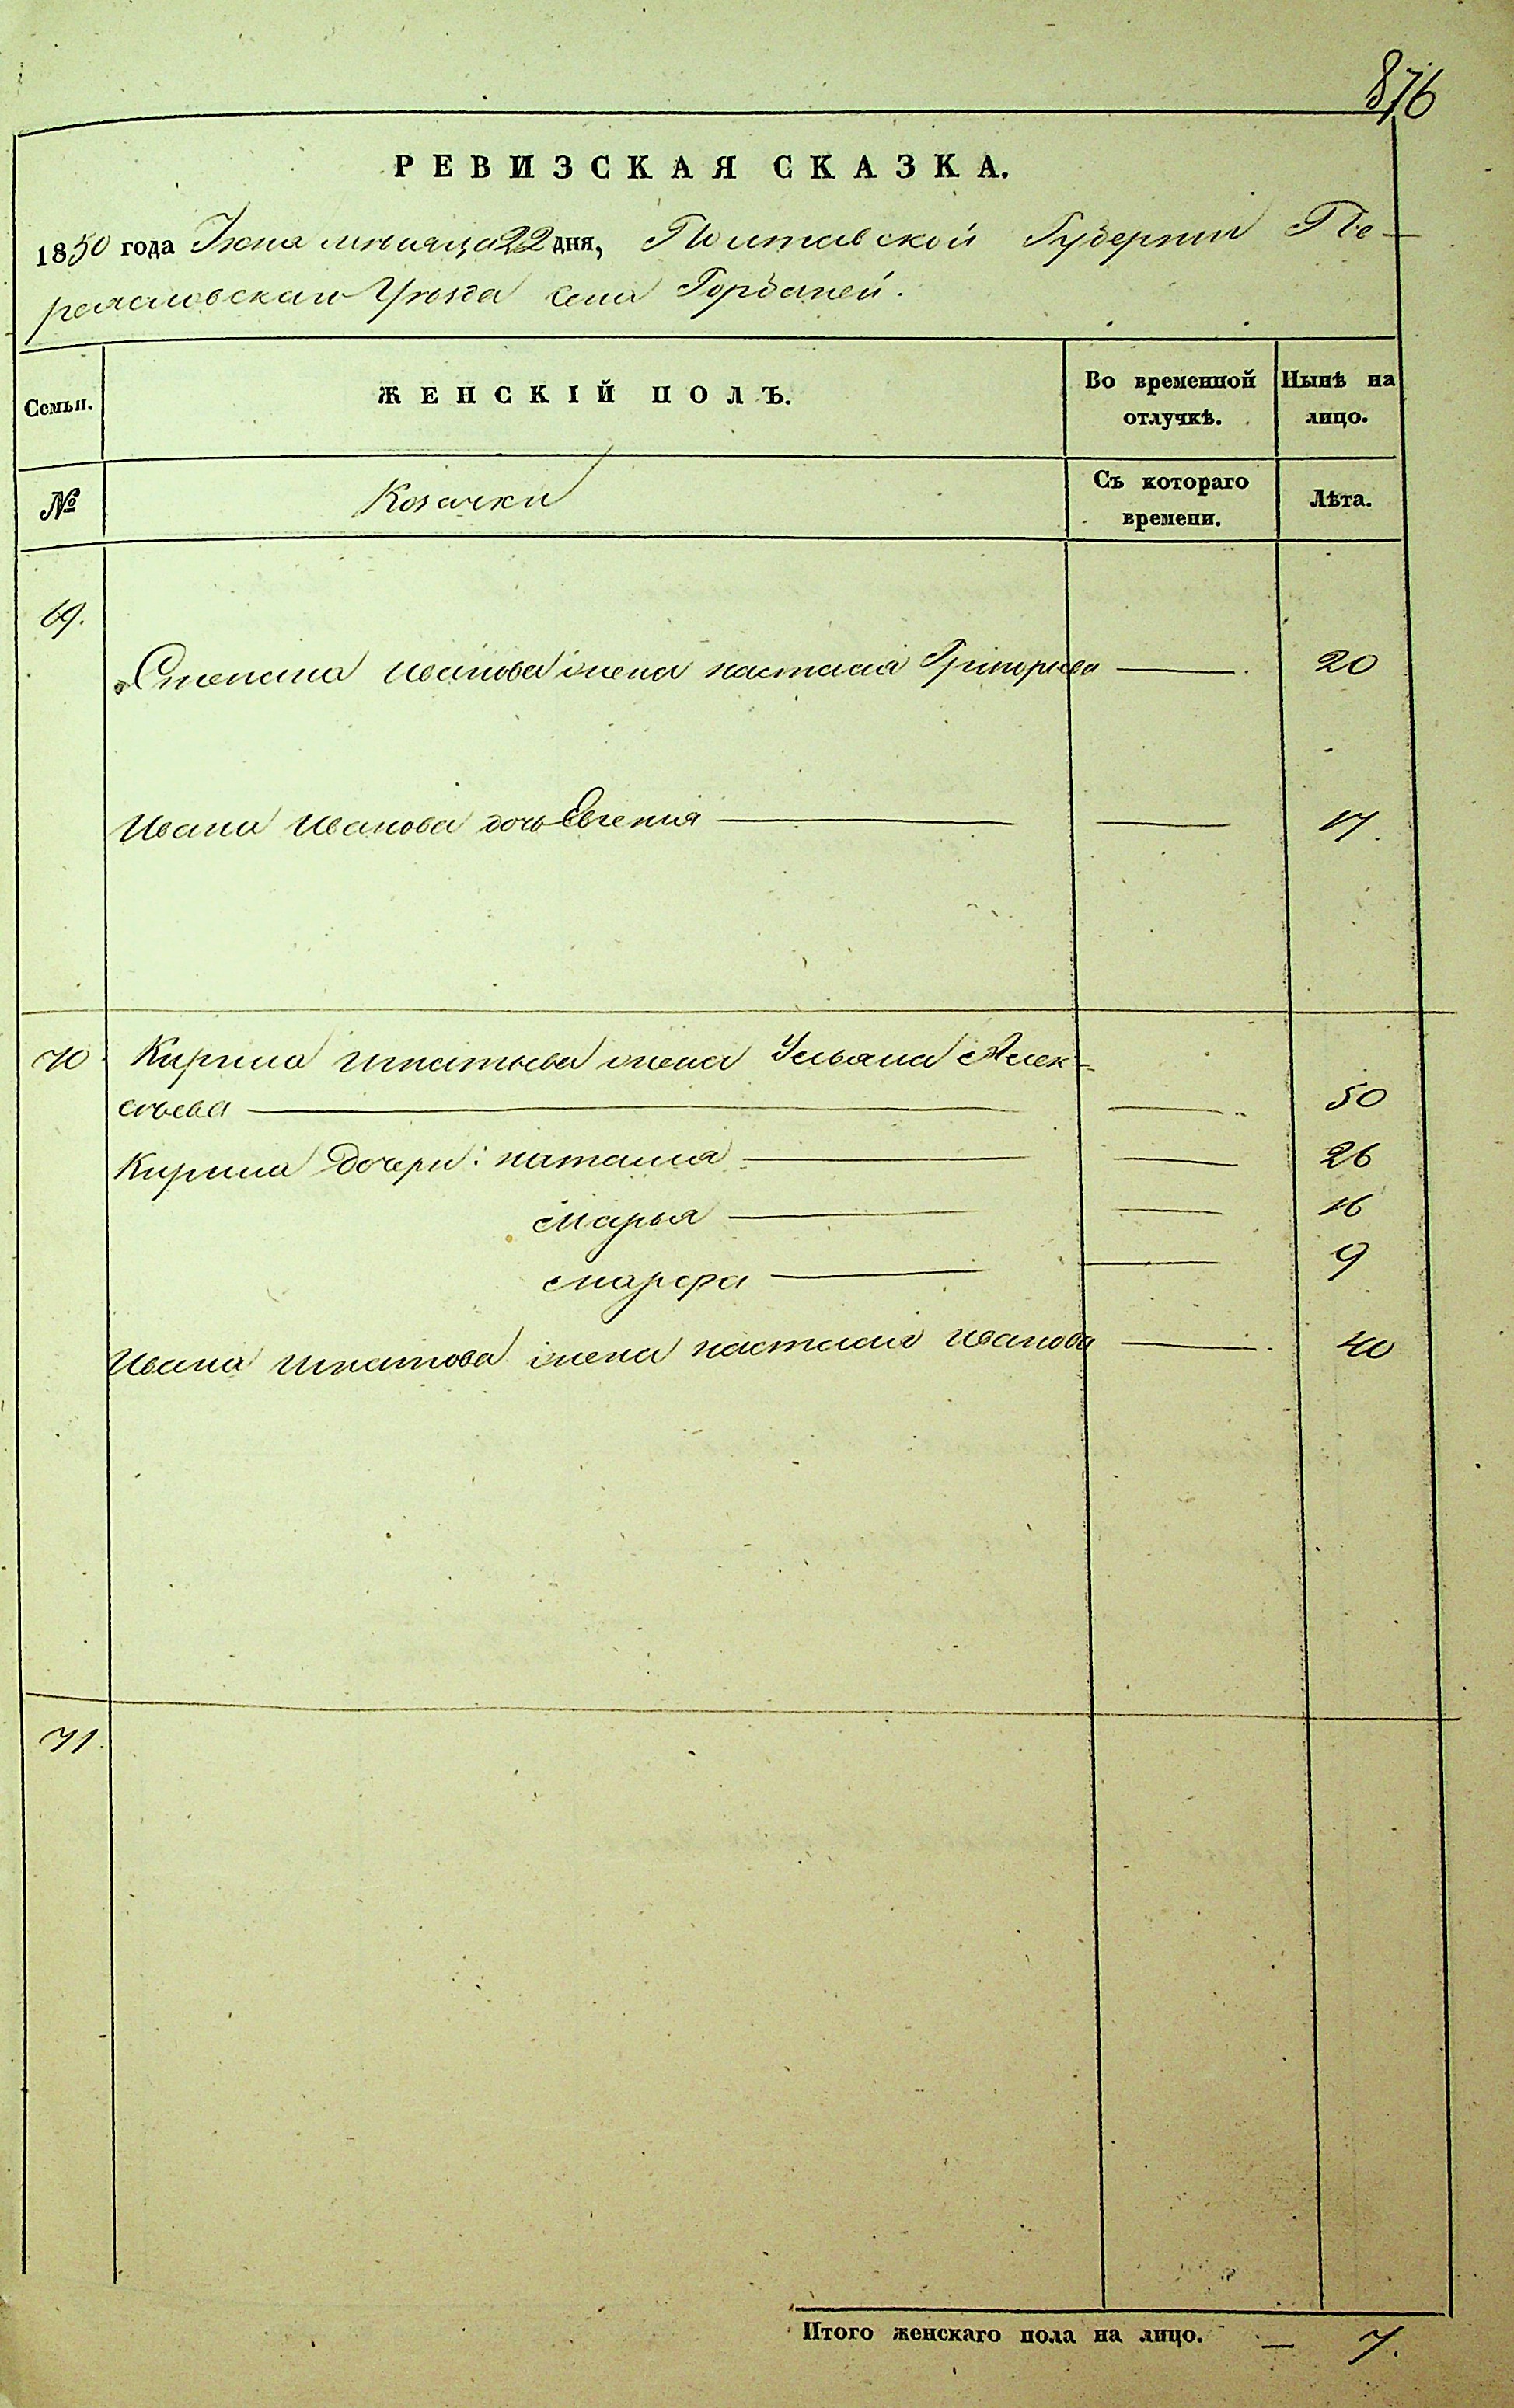 876
РЕВИЗСКАЯ СКАЗКА.
1850 года Іюня мѣсяца 22 дня, Полтавской Губерніи Пе-
реяславскаго Уѣзда села Горбаней.
Семьи.
ЖЕНСКІЙ ПОЛЪ.
Во временной отлучкѣ.
Нынѣ на лицо.
№
Козачки
Съ котораго времени.
Лѣта.
69.
Степана Иванова жена настасія Григорьева — 20
Ивана Иванова дочь Евгенія — — 17.
70 Кирила игнатьева жена Ульяна Алек-
сѣева — — 50
Кирила дочери: наталия — — 26
марья — — 16
марфа — — 9
Ивана игнатова жена настасия иванова — 40
71.
Итого женскаго пола на лицо. — 7.